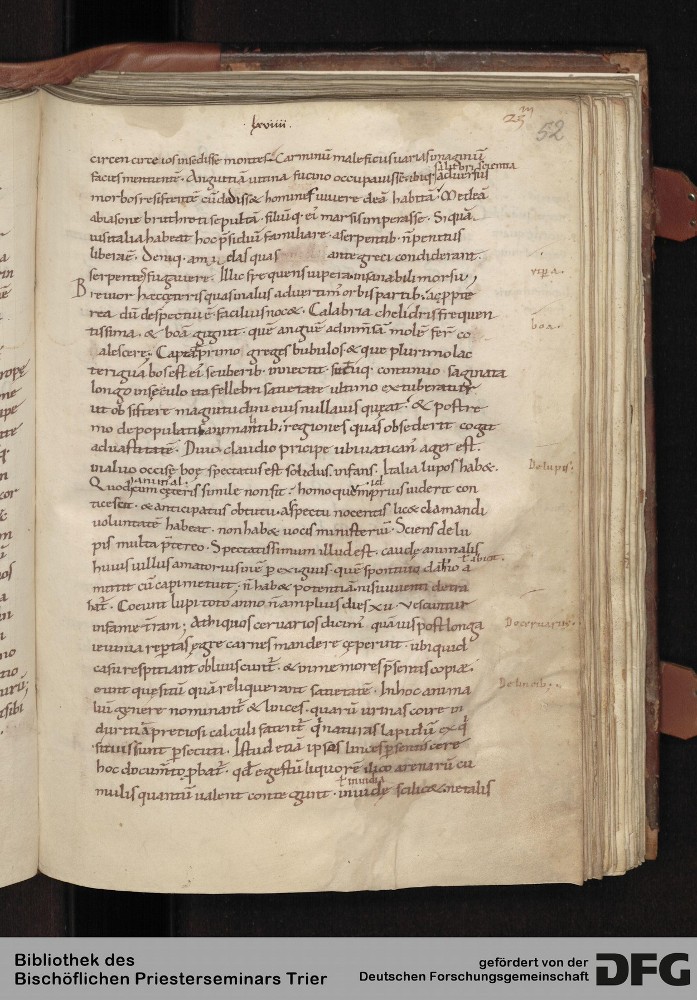 lxviiii.
23
52
circen circe ios insedisse montes. Carminū maleficus uarias imaginū
facies mentientē. Anguitiā uicina fucino occupauisse. ibiq; salubri scientia aduersus
morbos resistentē cū dedisset homines uiuere deā habitā. Medeā
ab iasone buthroti sepultā. filiūq; ei marsis imperasse. Si quā
uis italia habeat hoc p̄sidiū familiare. a serpentib; n̄ penitus
libera ē. Deniq; amyclas quas ante greci condiderant.
serpentes fugauere. Illic frequens uipera insanabili morsu
Breuior hec ceteris quas in aliis aduertim̄ orbis partib; ac ppte
rea dū despectui ē facilius nocet. Calabria chelidris frequen
tissima. & boā gignit. quē anguē ad inmensā molē fert̄ co
alescere. Captat primo greges bubulos & que plurimo lac
te rigua bos est ei se uberib; innectit. suctuq; continuo saginata
longo in seculo ita fellebri satietate ultimo extuberatur
ut obsistere magnitudini eius nulla uis queat. & postre
mo depopulatis animantib; regiones quas obsederit cogit
ad uastitatē. Diuo claudio pricipe ubi uaticanꝰ ager est.
in aluo occise boe spectatus est solidus infans. Italia lupos habet.
Quod animal cum ceteris simile non fit: homo quem prius uiderit con
ticescit. & anticipatus obtutu aspectu nocentis licet clamandi
uoluntatē habeat. non habet uocis ministeriū. Sciens de lu
pis multa p̄tereo. Spectatissimum illud est. caude animalis
huius uillus amatorius inē perexiguus. quē spontiuo damno
mittit cū capi metuit. n̄ habet potentiā nisi uiuenti detra
hat̄. Coeunt lupi toto anno n̄ amplius dies xii. Vescuntur
in fame t̄ram; Ad hi quos ceruarios dicim̄ quāuis post longa
ieiunia reptas egre carnes mandere ceperint. ubi quid
casu respitiant obliuiscunt̄. & inmemores p̄sentis copiae.
eunt quesitū quā reliquerant satietatē. In hoc anima
liū genere nominant̄ & linces. quarū urinas coire in
duritiā pretiosi calculi fatent̄ q̄ naturas lapidū ex q̄
situis sunt p̄secuti. Istud etiā ipsas linces p̄sentiscere
hoc documto p̄bat̄. qd egestū liquorē ilico arenarū cu
mulis quantū ualent contegunt. inuidie scilicet ne talis
uip̄a.
boa.
De lupis.
De ceruariis.
De lincib;
Bibliothek des
Bischöflichen Priesterseminars Trier
gefördert von der
Deutschen Forschungsgemeinschaft
DFG